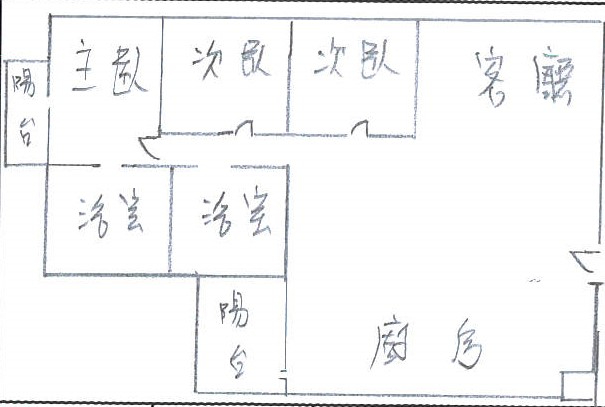 主臥
次臥
次臥
客廳
陽台
浴室
浴室
陽台
廚房